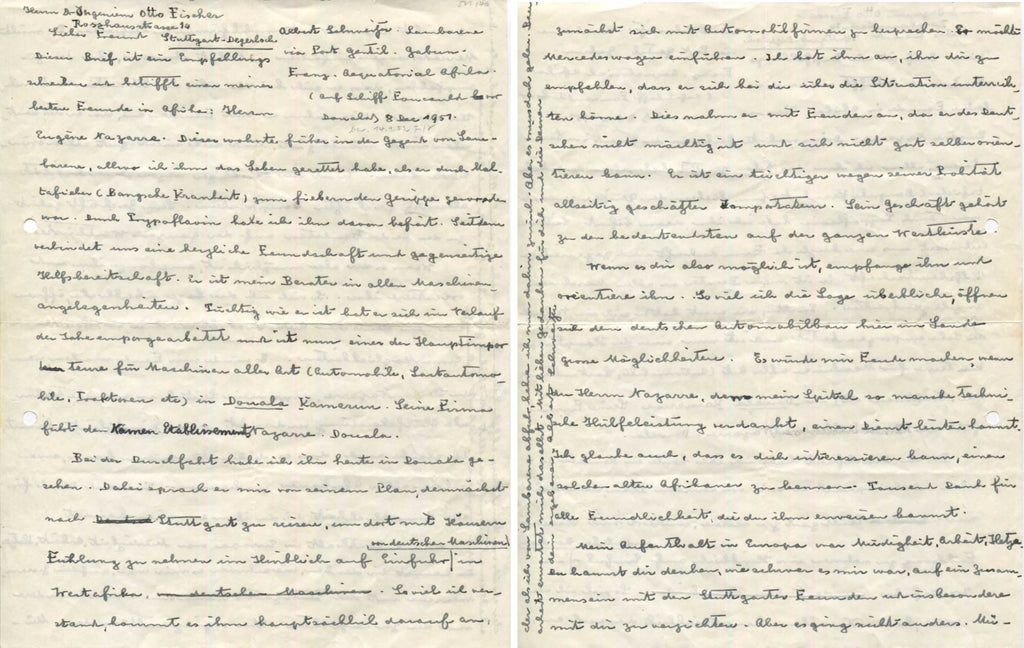 Herrn Dr Ingenieur Otto Fischer
Rosshaustrasse 14
Stuttgart-Degerloch
Albert Schweitzer. Lambarene
via Port Gentil. Gabun.
Franz. Aequatorial Afrika.
(auf Schiff Foucauld
Douala) 8 Dec 1951.
Lieber Freund
Dieser Brief ist ein Empfehlungs
schreiben und betrifft einen meiner
besten Freunde in Afrika: Herrn
Eugène Nazarre. Dieser wohnte früher in der Gegend von Lam-
barene, allwo ich ihm das Leben gerettet habe, als er durch Mal-
tafieber (Bangsche Krankeit) zum fiebernden Gerippe geworden
war. Durch Trypoflavin habe ich ihn davon befreit. Seitdem
verbindet uns eine herzliche Freundschaft und gegenseitige
Hilfsbereitschaft. Er ist mein Berater in allen Maschinen-
angelegenheiten. Tüchtig wie er ist hat er sich im Verlauf
der Jahre emporgearbeitet und ist nun einer der Hauptimpor
teure für Maschinen aller Art (Automobile, Lastautomo-
bile, Tracktoren etc) in Douala Kamerun. Seine Firma
führt den Namen Etablissement Nazarre. Douala.
Bei der Durchfahrt habe ich ihn heute in Douala ge-
sehen. Dabei sprach er mir von seinem Plan, demnächst
nach Stuttgart zu reisen, um dort mit Häusern
von deutschen Maschinen
Fühlung zu nehmen im Hinblick auf Einfuhr in
Westafrika, von deutschen Maschinen. Soviel ich ver-
stand, kommt es ihm hauptsächlich darauf an,
zunächst sich mit Automobilfirmen zu besprechen. Er möchte
Mercedeswagen einführen. Ich bot ihm an, ihn dir zu
empfehlen, dass er sich bei dir über die Situation unterrich-
ten könne. Dies nahm er mit Freuden an, da er des Deut-
schen nicht mächtig ist und sich nicht gut selber orien-
tieren kann. Er ist ein tüchtiger wegen seiner
allseitig geschätzter
Sein Geschäft gehört
zu den bedeutendsten auf der ganzen Westküste.
Wenn es dir also möglich ist, empfange ihn und
orientiere ihn. So viel ich die Lage überblicke, öffnen
sich dem deutschen Automobilbau hier im Lande
grosse Möglichkeiten. Es würde mir Freude machen, wenn
du Herrn Nazarre, dem mein Spital so manche techni-
sche Hilfeleistung verdankt, einen Dienst leisten kannst.
Ich glaube auch, dass es dich interessieren kann, einen
solchen alten Afrikaner zu kennen. Tausend Dank für
alle Freundlichkeit, die du ihm erweisen kannst.
Mein Aufenthalt in Europa war Müdigkeit, Arbeit, Hetze.
Du kannst dir denken, wie schwer es mir war, auf ein Zusam-
mensein mit den Stuttgarter Freunden und insbesondere
mit dir zu verzichten. Aber es ging nicht anders. Mü-
der als ich von Lambarene abfuhr, kehre ich nun dahin zurück. Aber es muss doch gehen.
arbeit erwartet mich daselbst. Mit lieben Gedanken für dich und die Deinen
dein ergebener Albert Schweitzer